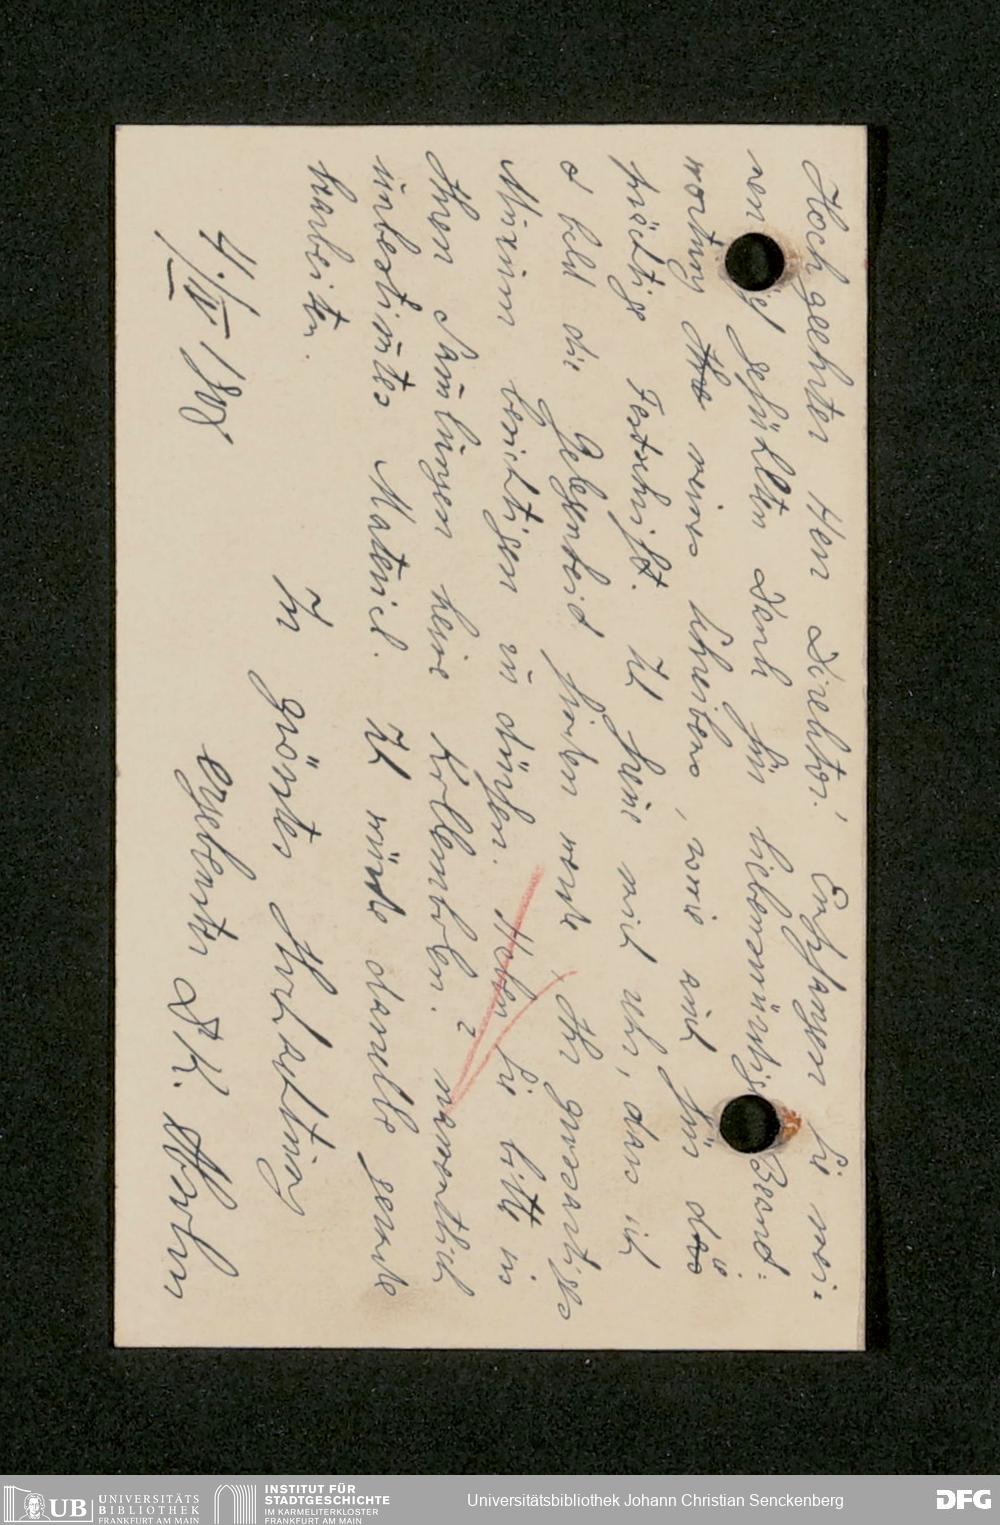 Hochgeehrter Herr Direktor! Empfangen Sie mei-
nen gefühlten Dank für liebenswürdige Beant-
wortung meines Schreibens, wie auch für die
prächtige Festschrift. Ich freue mich sehr, dass ich
bald die Gelegenheit finden werde Ihr grossartiges
Museum besichtigen zu dürfen. Haben Sie bitte in
Ihren Samlungen keine Kollembolen? namentlich
unbestimtes Material. Ich würde dasselbe gerade
bearbeiten.
In grösster Hochachtung
4./IV 1908
ergebenster Dr K. Absolon
UB UNIVERSITÄTS
BIBLIOTHEK
FRANKFURT AM MAIN
INSTITUT FÜR
STADTGESCHICHTE
IM KARMELITERKLOSTER
FRANKFURT AM MAIN
Universitätsbibliothek Johann Christian Senckenberg
DFG